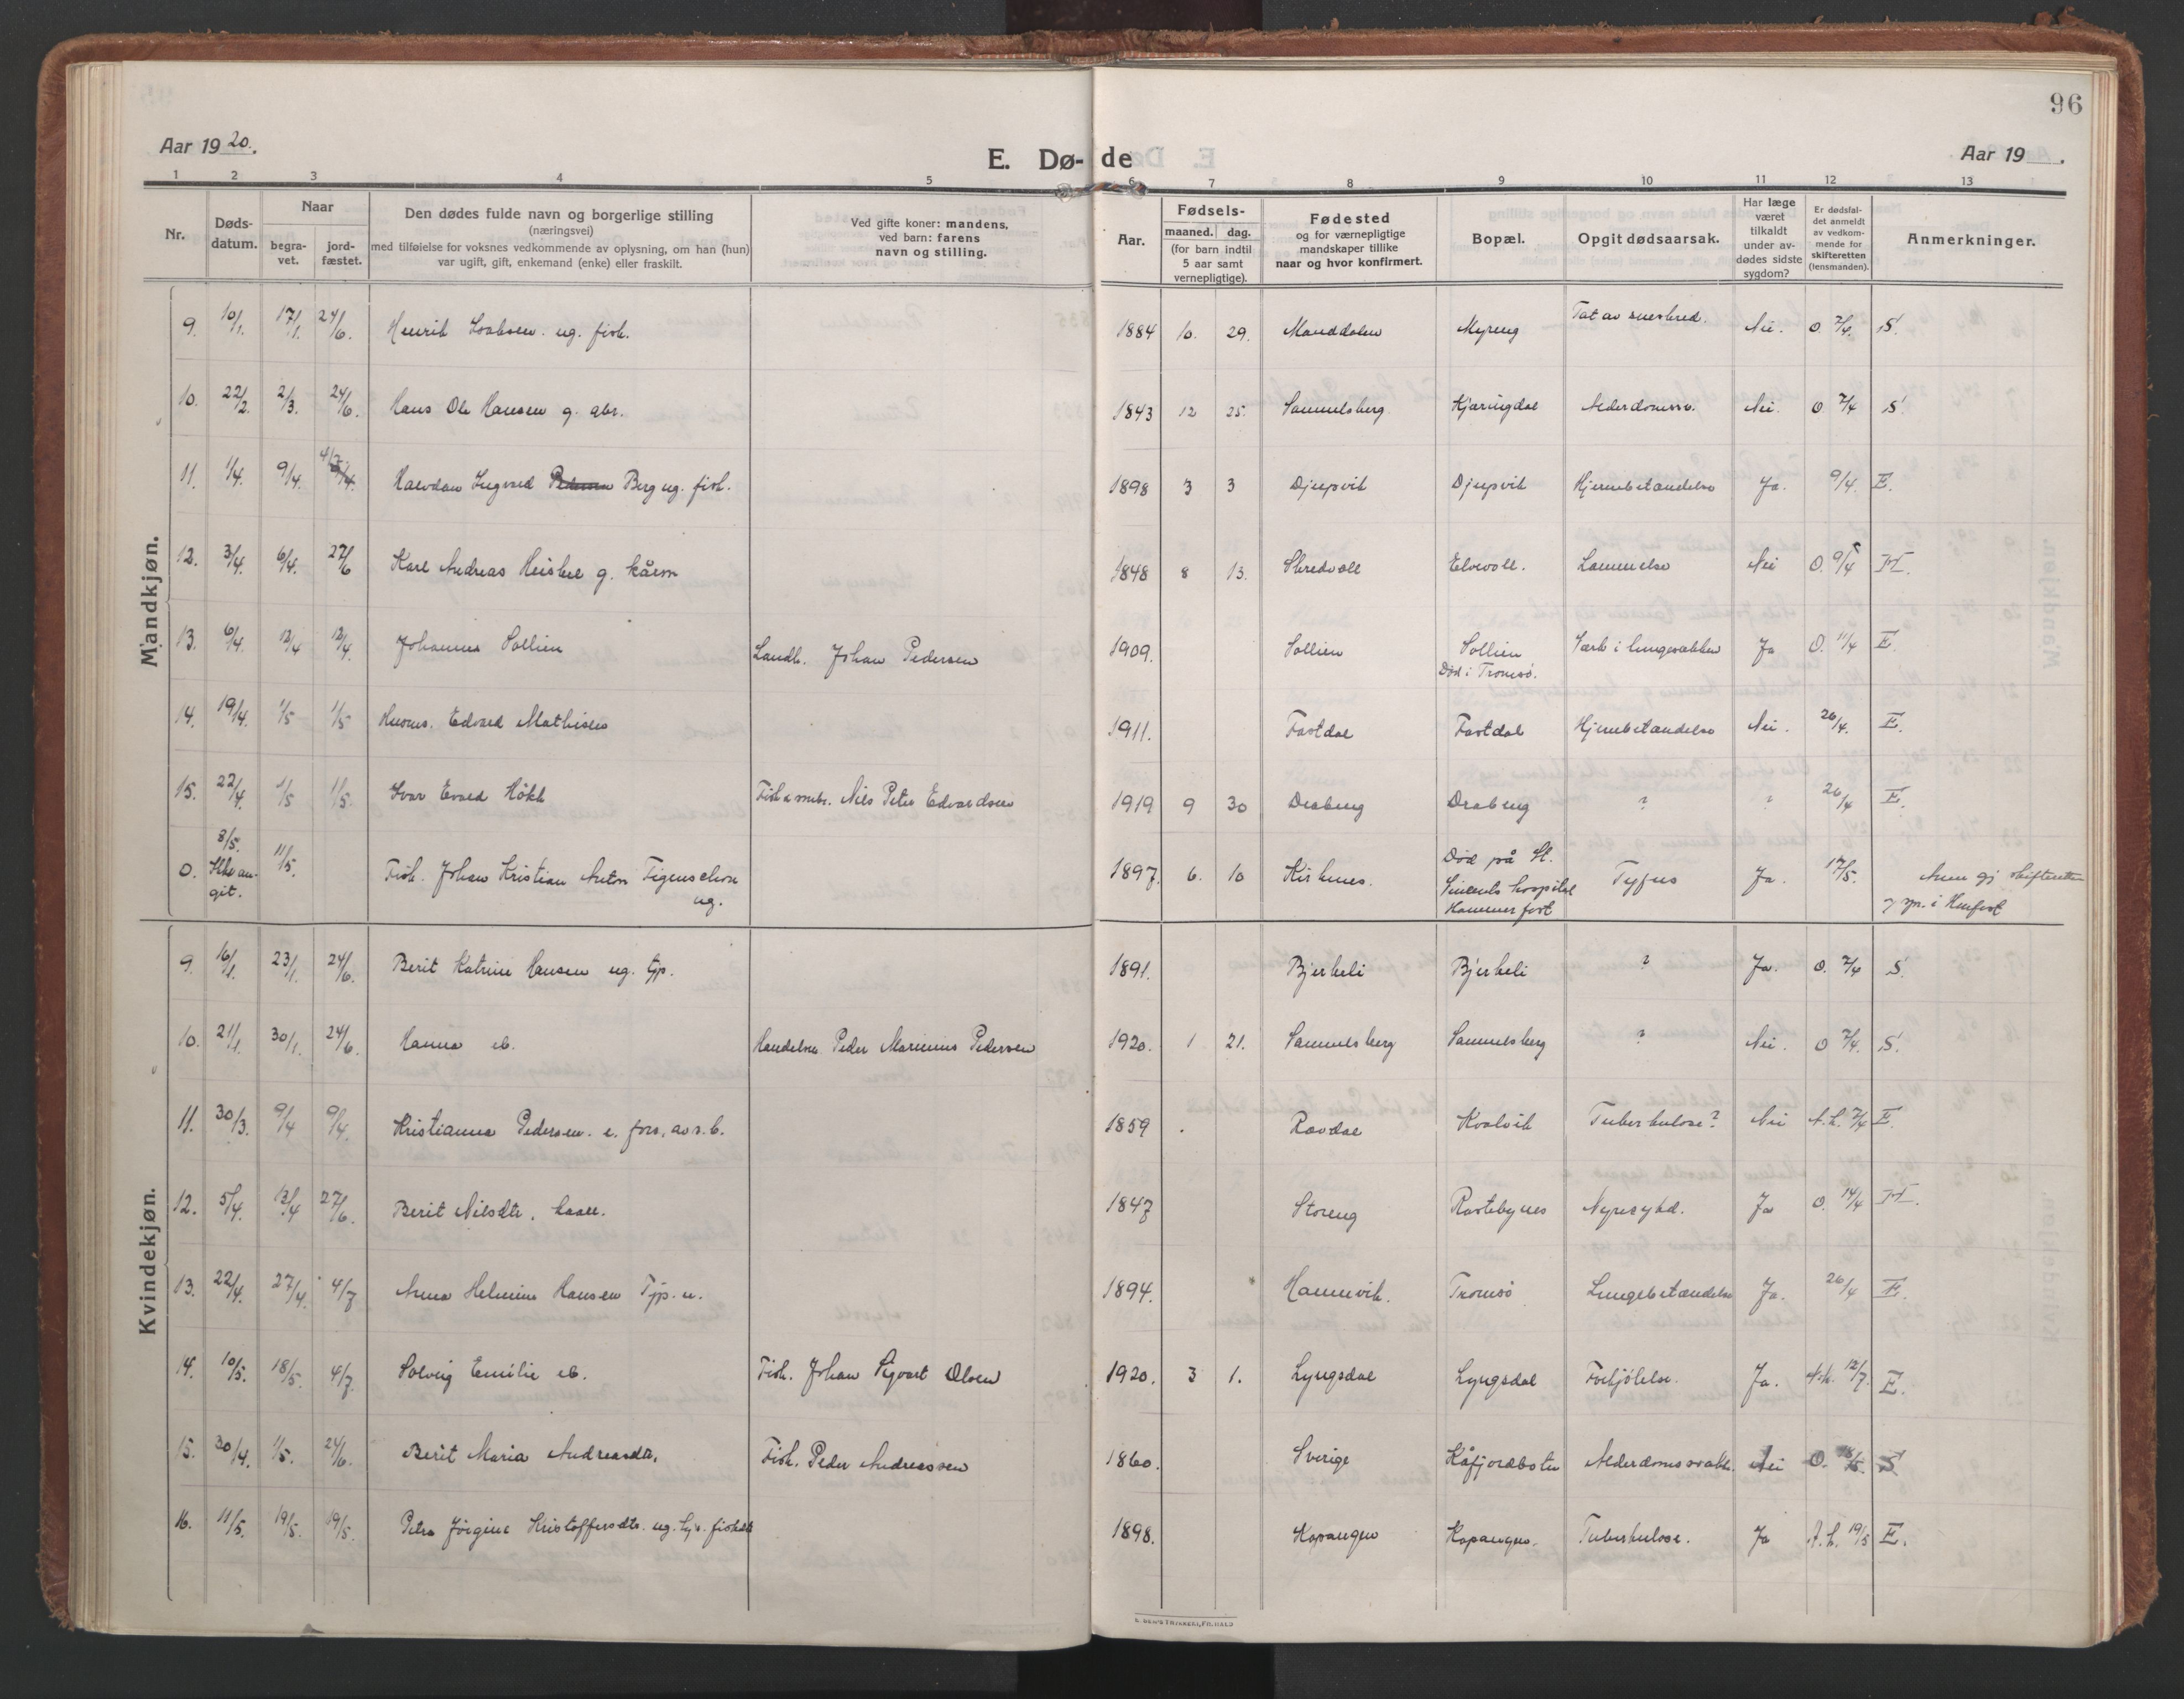 96
Aar 1920.
E. Dø-de
Aar 19 .
1 2 3 4 5 6 7 8 9 10 11 12 13
Nr.
Døds-
datum.
Naar
begra-
vet.
jord-
fæstet.
Den dødes fulde navn og borgerlige stilling
(næringsvei)
med tilføielse for voksnes vedkommende av oplysning, om han (hun)
var ugift, gift, enkemand (enke) eller fraskilt.
Ved gifte koner: mandens,
ved barn: farens
navn og stilling.
Aar.
Fødsels-
maaned. dag.
(for barn indtil
5 aar samt
vernepligtige).
Fødested
og for værnepligtige
mandskaper tillike
naar og hvor konfirmert.
Bopæl.
Opgit dødsaarsak.
Har læge
været
tilkaldt
under av-
dødes sidste
sygdom?
Er dødsfal-
det anmeldt
av vedkom-
mende for
skifteretten
(lensmanden).
Anmerkninger.
Mandkjøn.
9. 10/1. 17/1. 24/6. Henrik Isaksen. ug. fisk. 1884 10. 29. Manddalen Myreng Tat av sneskred. Nei. O 7/4. S.
10. 22/2. 2/3. 24/6. Hans Ole Hansen g. abr. 1843 12 25. Samuelsberg Kjæringdal Alderdomssv. Nei. O 7/4 S.
11. 1/4. 9/4. 4/7 Halvdan Ingvald Berg ug. fisk. 1898 3 3 Djupvik Djupvik Hjernebetændelse Ja. 9/4. E.
12. 3/4. 6/4. 27/6 Karl Andreas Heiskel g. kårm 1848 8 13. Skredvoll Elvevoll. Lammelse Nei O. 9/4
13. 6/4. 12/4 12/4. Johannes Sollien Landh. Johan Pedersen 1909. Sollien Sollien Værk i lungesækken Ja O. 11/4 E
Død i Tromsø.
14. 19/4. 1/5 1/5 Edvard Mathisen 1911. Fastdal Fastdal Hjernebetændelse Nei. 26/4. E.
15. 22/4. 1/5 1/5. Ivar Evald Høkk Fisk & smbr. Nils Peter Edvardsen 1919 9 30 Drabeng Drabeng ? ? 26/4 E.
0. 8/5. Ikke an-
git. 11/5. Fisk. Johan Kristian Anton Figenschou
ug. 1897. 6. 10 Kirknes. Død på St.
Vincents hospital
Hammerfest Tyfus Ja. 17/5. Anm gj skifteretten
i Hmfest
Kvindekjøn.
9. 16/1. 23/1. 24/6 Berit Katrine Hansen ug. tjp. 1891. Bjerkeli Bjerkeli ? Ja. O. 7/4 S.
10. 21/1. 30/1. 24/6. Hanna eb. Handelsm. Peder Marinius Pedersen 1920. 1 21. Samuelsberg Samuelsberg ? Nei. O 7/4. S.
11. 30/3. 9/4 9/4. Kristianna Pedersen. e. fors. av s. b. 1859 Rovdal Kvalvik Tuberkulose? Nei A.L. 7/4 E.
12. 5/4. 13/4 27/6. Berit Nilsdtr. kaare. 1847 Storeng Rastebynes Nyresykd. Ja O. 14/4
13. 22/4. 27/4. 4/7 Anna Helmine Hansen Tjp. u. 1894. Hamnvik. Tromsø Lungebetændelse Ja. 26/4 E.
14. 10/5. 18/5. 4/7. Solveig Emilie eb. Fisk. Johan Sigvart Olsen 1920. 3 1. Lyngsdal Lyngsdal Forkjølelse. Ja. 12/7. E.
15. 30/4. 1/5. 24/6. Berit Maria Andreasdtr. Fisk. Peder Andreassen 1860. Sverige Kåfjordbotn Alderdomssvakh. Nei O. 18/5. S
16. 11/5. 19/5. 19/5. Petra Jørgine Kristoffersdtr. ug. hj. fiskedtr 1898. Kopangen Kopangen. Tuberkulose. Ja A.L. 19/5 E.